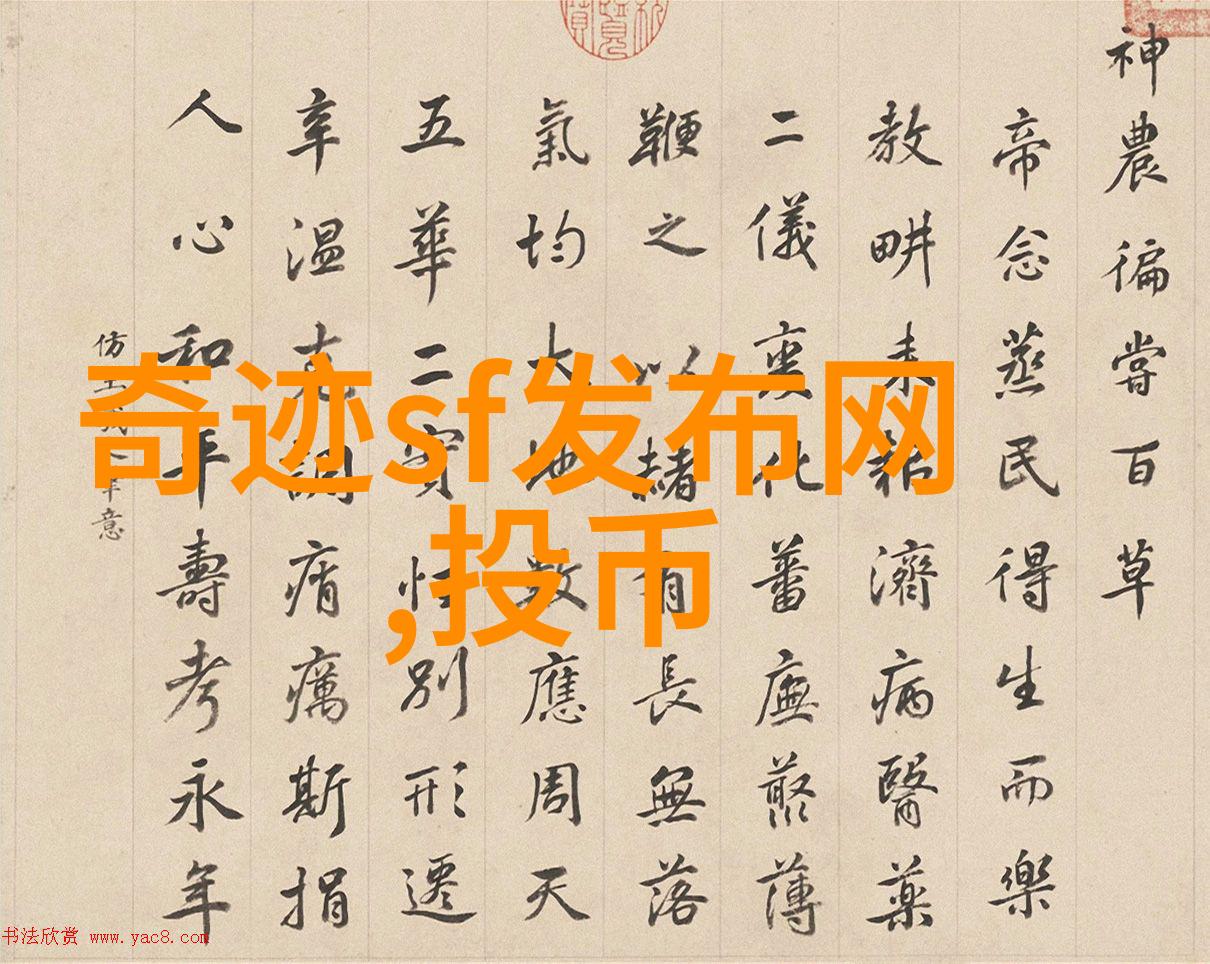 神農徧嘗百草
帝念蒸民得生而樂
教畊耒耜濟病醫藥
二儀化蕃廡藂薄
鞭之以赭有長無落
氣均大地數應周天
五華二實性別形遷
辛温克調癘斯捐
人心和平壽考永年
仿王意
奇迹sf发布网
,投币
书法欣赏 www.yac8.com